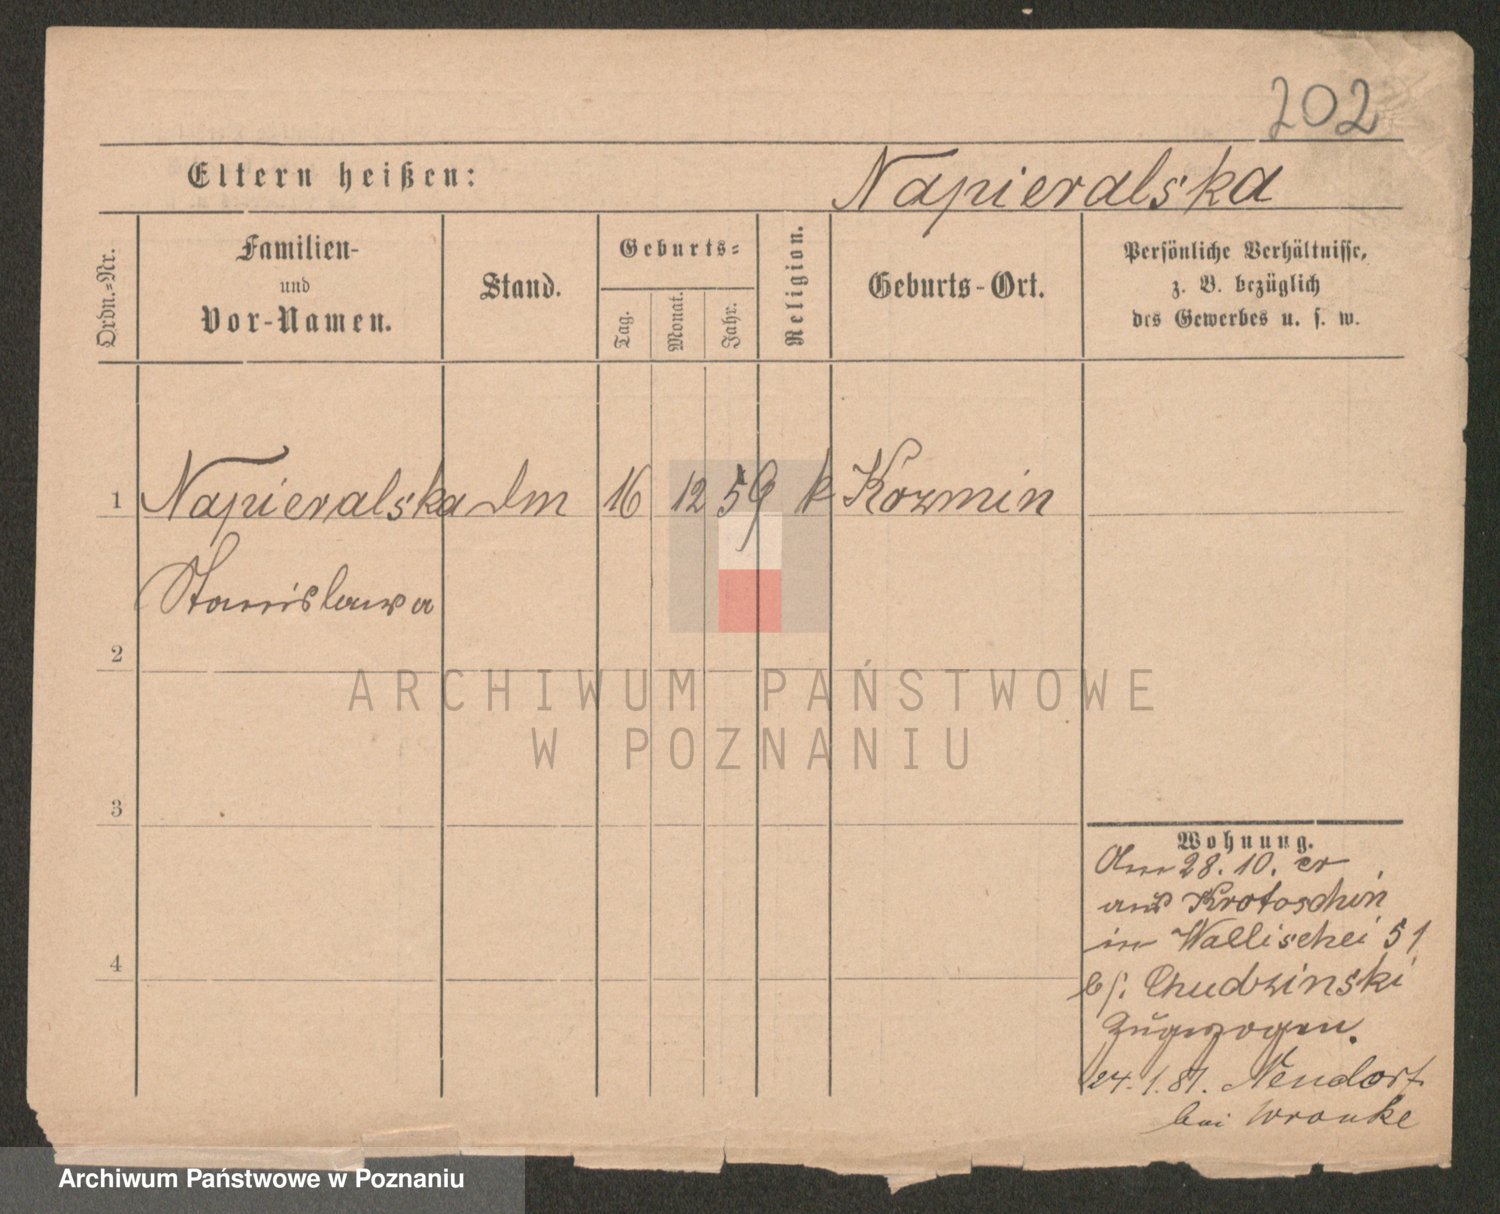 202
Eltern heißen: Napieralska
Ordn.-Nr.
Familien-
und
Vor-Namen.
Stand.
Geburts-
Tag.
Monat.
Jahr.
Religion.
Geburts-Ort.
Persönliche Verhältnisse,
z. B. bezüglich
des Gewerbes u. s. w.
1 Napieralska dm 16 12 59 k Kozmin
Stanislawa
2
3
4
Wohnung.
Am 28. 10. cr
aus Krotoschin
in Wallischei 51
b/. Chudzinski
Zugezogen.
24. 1. 81. Neudorf
bei Wronke
ARCHIWUM PAŃSTWOWE
W POZNANIU
Archiwum Państwowe w Poznaniu